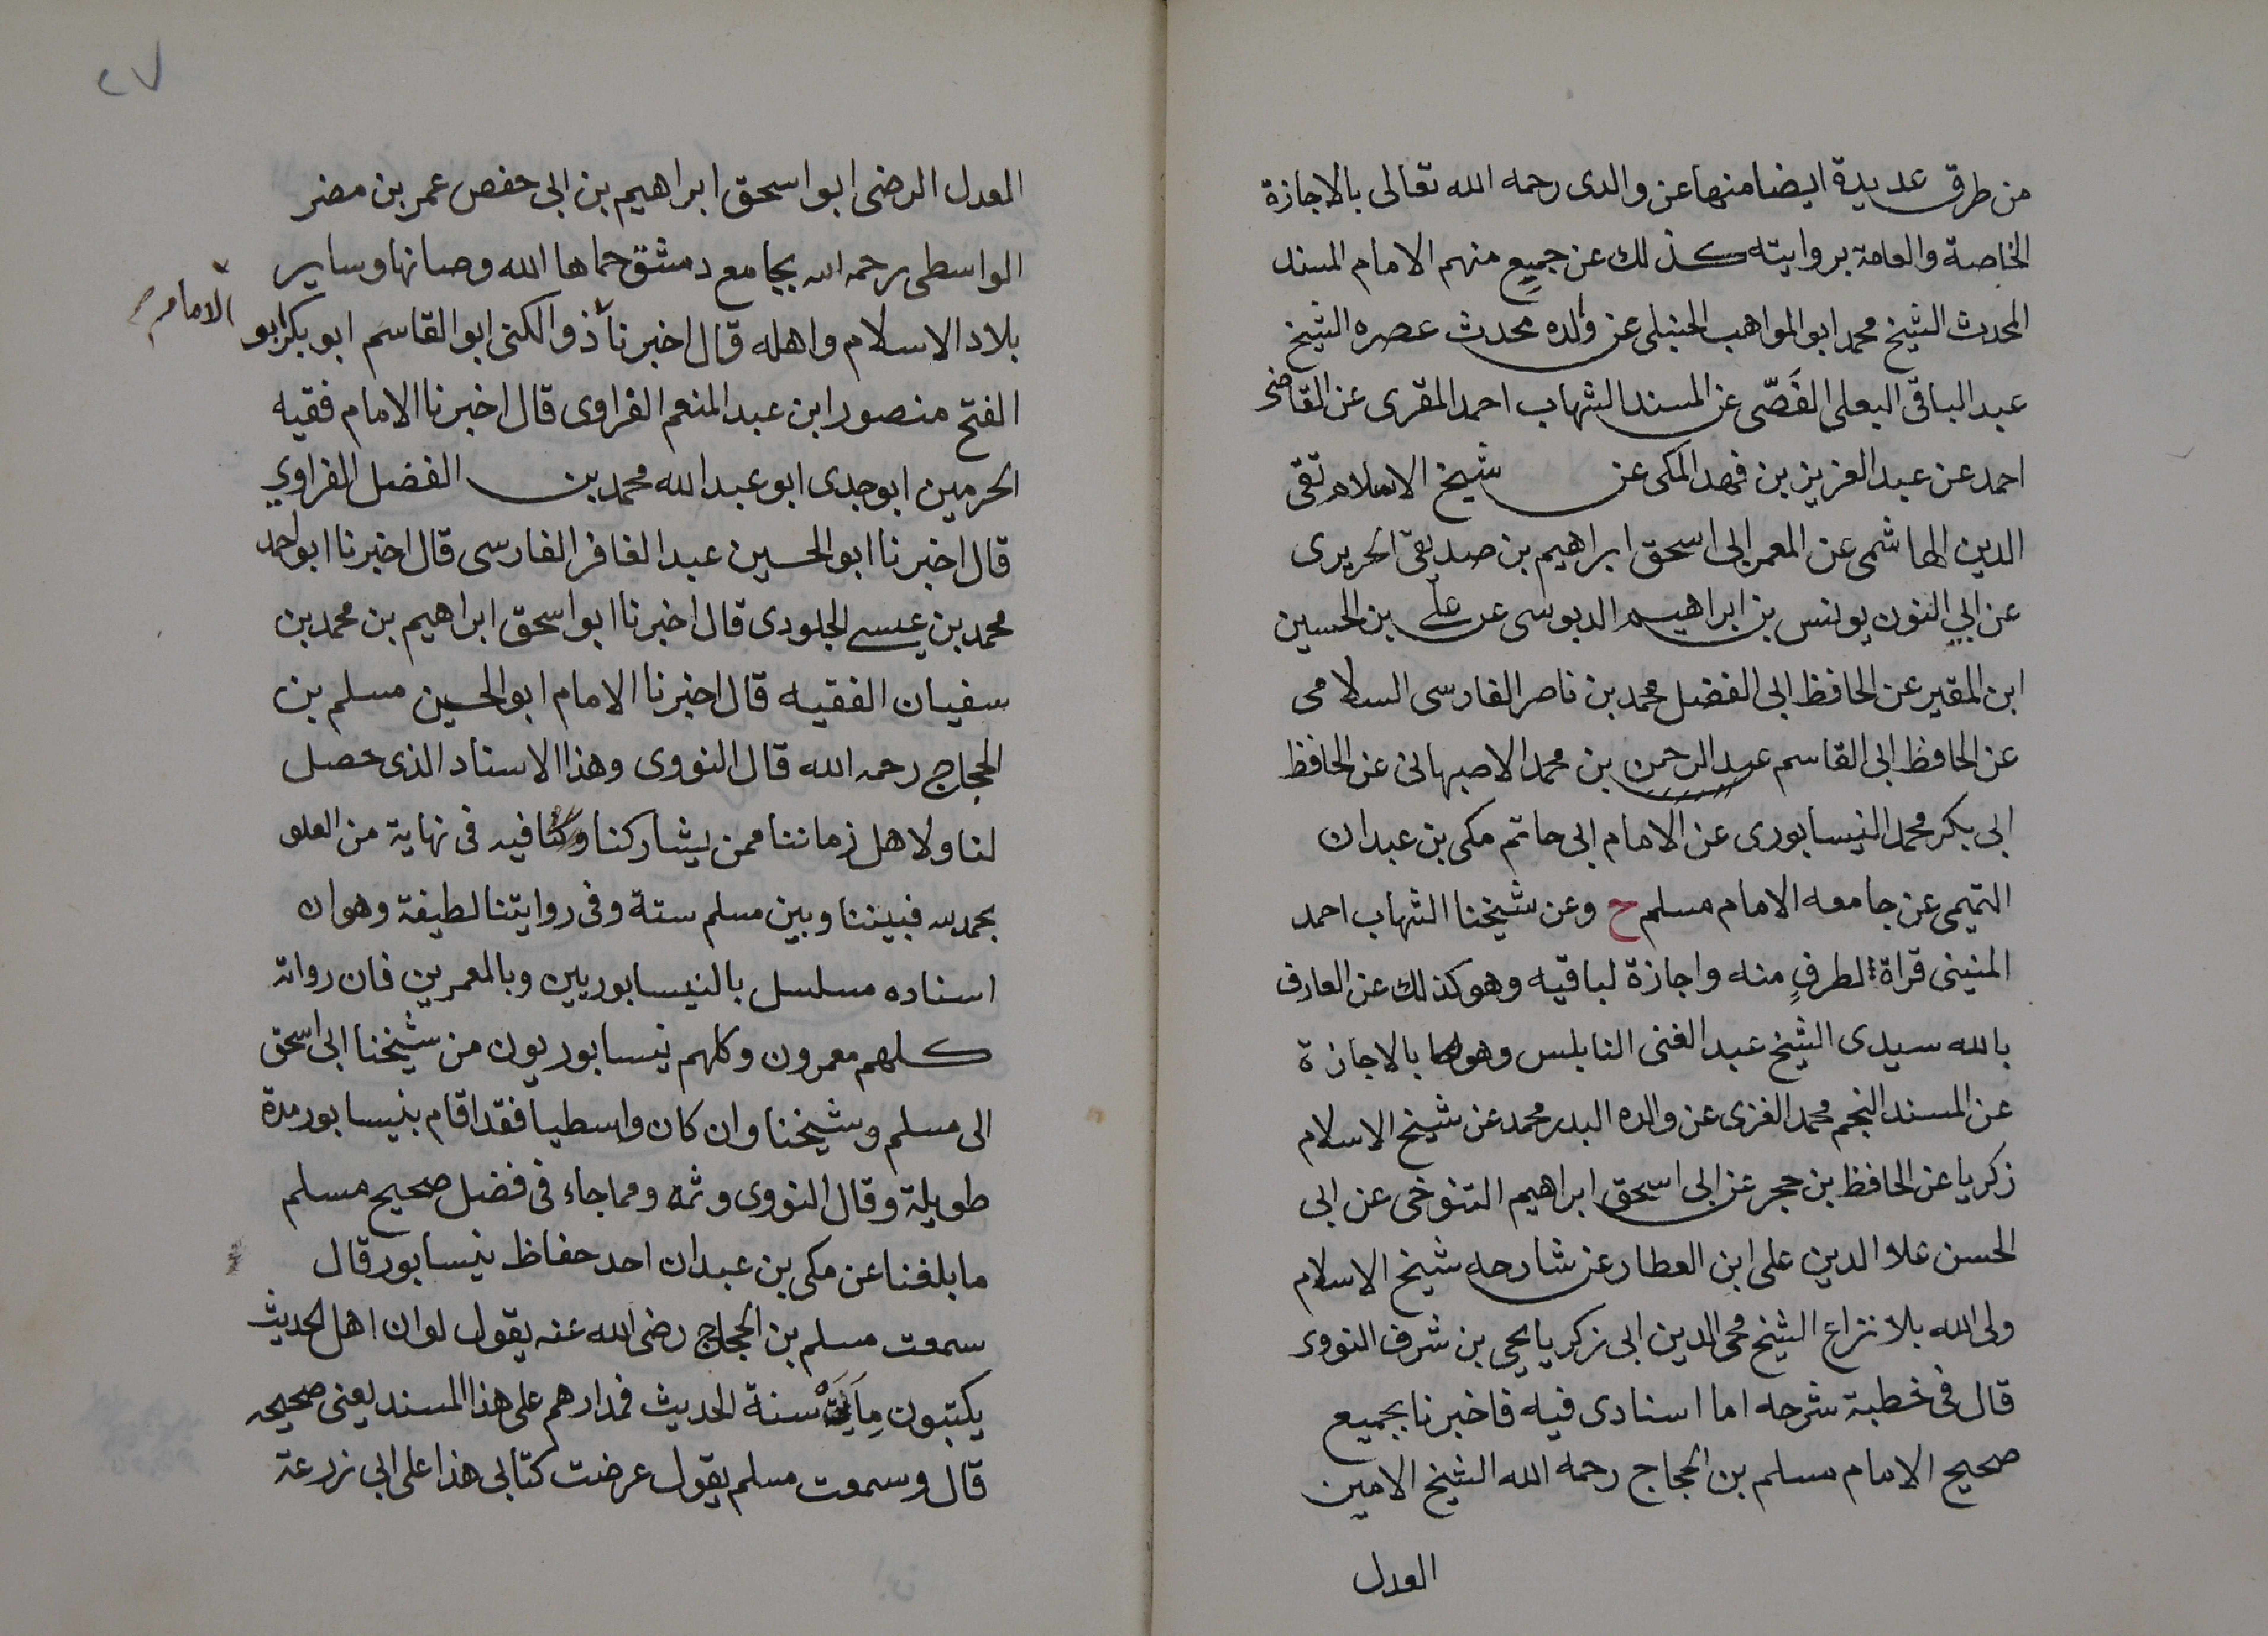 من طرق عديدة ايضا منها عن والدى رحمه الله تعالى بالاجازة
الخاصة والعامة بروايته كذلك عن جميع منهم الامام المسند
المحدث الشيخ محمد ابو المواهب الحنبلى عن والده محدث عصره الشيخ
عبد الباقى البعلى الفَصّى عن المسند الشهاب احمد المقرى عن القاضى
احمد عن عبد العزيز بن فهد المكى عن شيخ الاسلام تقى
الدين الهاشمى عن المعمر ابى اسحق ابراهيم بن صديق الحريرى
عن ابي النون يونس بن ابراهيم الدبوسى عن على بن الحسين
ابن المقير عن الحافظ ابى الفضل محمد بن ناصر الفارسى السلامى
عن الحافظ ابى القاسم عبد الرحمن بن محمد الاصبهانى عن الحافظ
ابى بكر محمد النيسابورى عن الامام ابى حاتم مكى بن عبدان
التميمى عن جامعه الامام مسلم ح وعن شيخنا الشهاب احمد
المنينى قراة لطرفٍ منه واجازة لباقيه وهو كذلك عن العارف
بالله سيدى الشيخ عبد الغنى النابلس وهو بالاجازة
عن المسند النجم محمد الغزى عن والده البدر محمد عن شيخ الاسلام
زكريا عن الحافظ بن حجر عن ابى اسحق ابراهيم التنوخى عن ابى
الحسن علا الدين على ابن العطار عن شارحه شيخ الاسلام
ولى الله بلا نزاع الشيخ محى الدين ابى زكريا يحيى بن شرف النووى
قال فى خطبة شرحه اما اسنادى فيه فاخبرنا بجميع
صحيح الامام مسلم بن الحجاج رحمه الله الشيخ الامين
العدل
٢٧
العدل الرضى ابو اسحق ابراهيم بن ابى حفص عمر بن مضر
الواسطى رحمه الله بجامع دمشق حماها الله وصانها وساير
بلاد الاسلام واهله قال اخبرنا ذو الكنى ابو القاسم ابو بكر ابو
الامام
الفتح منصور ابن عبد المنعم الفراوى قال اخبرنا الامام فقيه
الحرمين ابو جدى ابو عبد الله محمد بن الفضل الفراوي
قال اخبرنا ابو الحسين عبد الغافر الفارسى قال اخبرنا ابو احمد
محمد بن عيسى الجلودى قال اخبرنا ابو اسحق ابراهيم بن محمد بن
سفيان الفقيه قال اخبرنا الامام ابو الحسين مسلم بن
الحجاج رحمه الله قال النووى وهذا الاسناد الذى حصل
لنا ولاهل زماننا ممن يشاركنا فيه فى نهاية من العلو
بحمد الله فبيننا وبين مسلم ستة وفى روايتنا لطيفة وهو ان
اسناده مسلسل بالنيسابوريين وبالمعمرين فان رواته
كلهم معمرون وكلهم نيسابوريون من شيخنا ابى اسحق
الى مسلم وشيخنا وان كان واسطيا فقد اقام بنيسابور مدة
طويلة وقال النووى وثمه ومما جاء فى فضل صحيح مسلم
ما بلغنا عن مكى بن عبدان احد حفاظ نيسابور قال
سمعت مسلم بن الحجاج رضى الله عنه يقول لو ان اهل الحديث
يكتبون مِايَتَ سنة الحديث فمدارهم على هذا المسند يعنى صحيحه
قال وسمعت مسلم يقول عرضت كتابى هذا على ابى زرعة